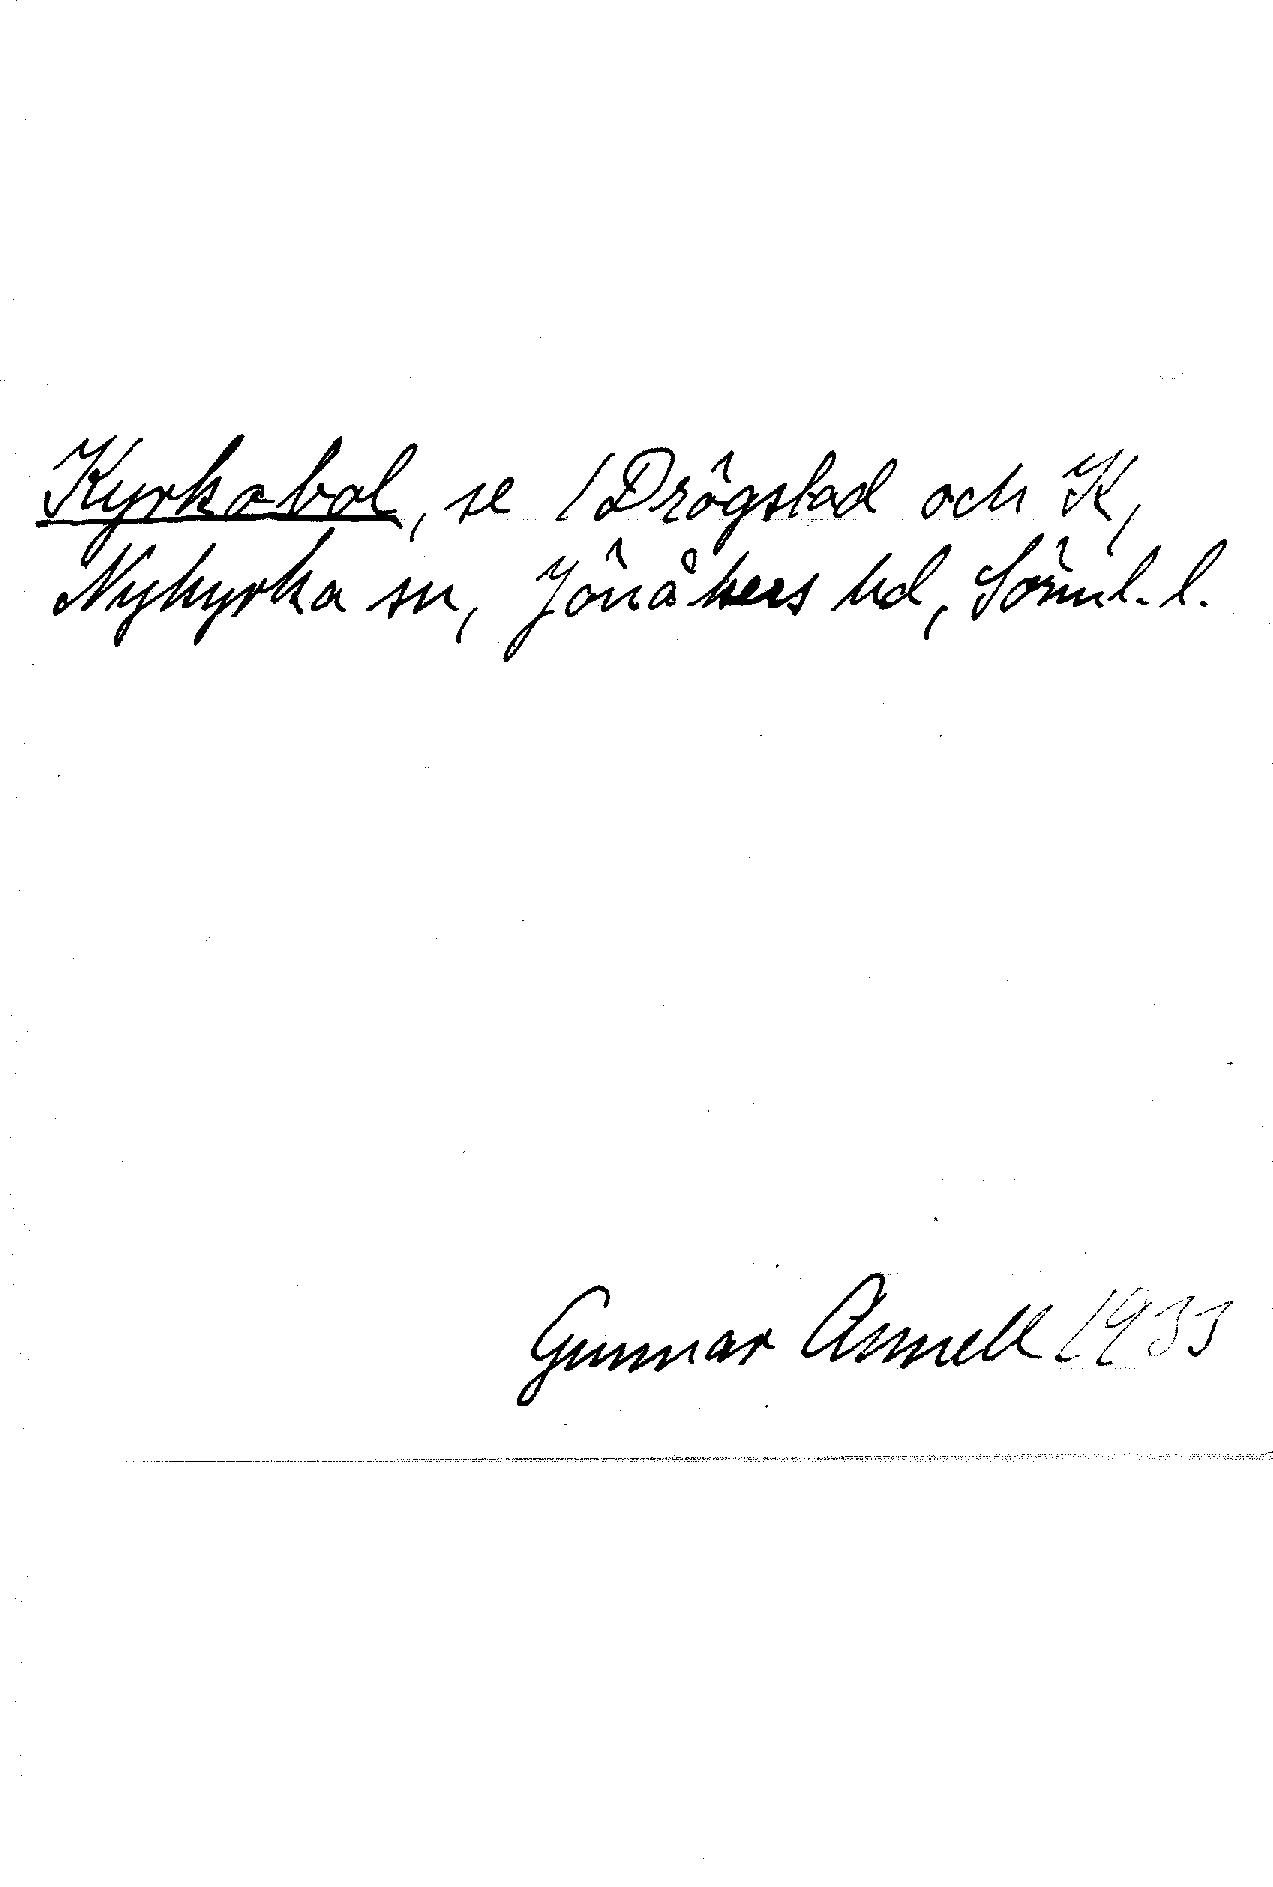 Kyrkobol, se /Drögstad och K,
Nykyrka sn, Jönåkers hd, Söml. l.
Gunnar Asmell 1933